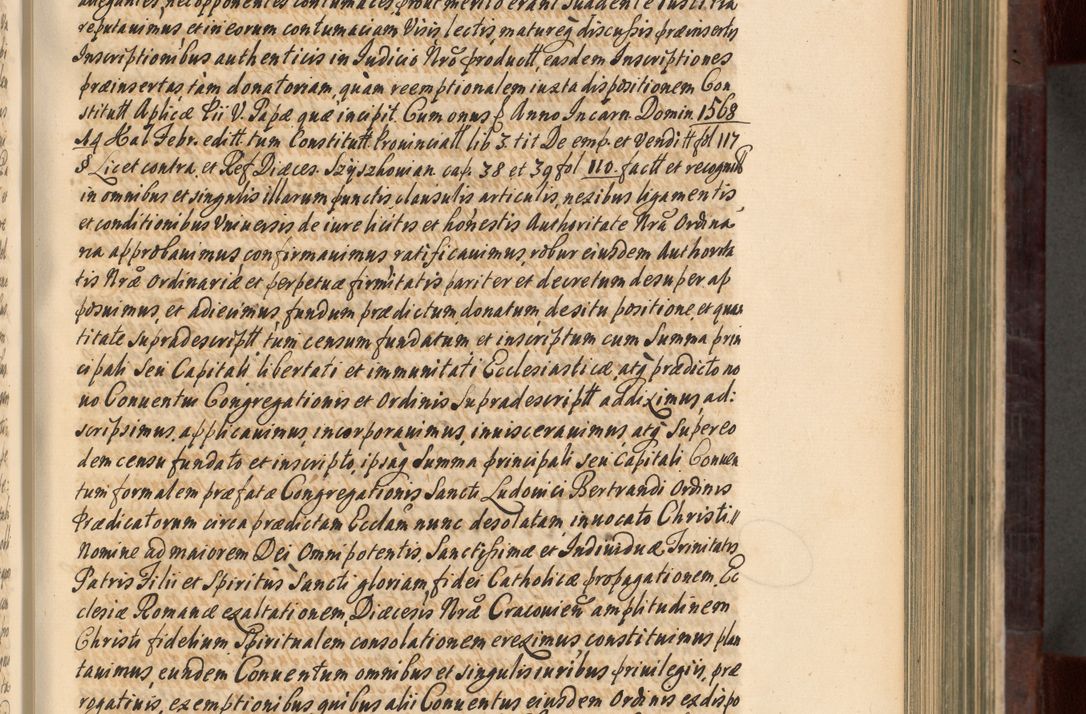 allegantes, nec opponentes contumaces prout merito erant suadente Iustitia
reputauimus et in eorum contumaciam Visis, lectis, matureq discussis præinsertis
Inscriptionibus authenticis in Iudicio Nrõ productt, easdem Inscriptiones
præinsertas tàm donatoriam, quàm reemptionalem iuxta dispositionem Con
stitutt Aplicæ Pii V. Papæ quæ incipit. Cum onus p Anno Incarn Domin. 1568
14 Kal Febr. editt tum Constitutt Prouinciall lib 3. tit De emp. et Vendi tt fol 117
§ Licet contra et Ref Diæces. Szyszkouian cap. 38 et 39 fol 110. factt et recognitt
in omnibus et singulis illarum punctis clausulis articulis, nexibus ligamentis
et conditionibus Vniuersis de iure licitis et honestis Authoritate Nrã Ordina
ria approbauimus, confirmauimus ratificauimus, robur eiusdem Authorita
tis Nræ Ordinariæ et perpetuæ firmitatis pariter et decretum desuper ap
posuimus, et adiecimus, fundum prædictum, donatum, de situ positione et quan
titate supradescriptt, tùm censum fundatum et inscriptum cum Summa prin
cipali seu Capitali libertati et immunitati Ecclesiasticæ, atq prædicto no
uo Conuentui Congregationis et Ordinis Supradescriptt addiximus, ad:
scripsimus, applicauimus, incorporauimus, inuiscerauimus, atq Super eo
dem censu fundato et inscripto, ipsaq Summa principali seu Capitali Conuen
tum formalem præfatæ Congregationis Sancti Ludouici Bertrandi Ordinis
Prædicatorum circa prædictam Ecclam nunc desolatam inuocato Christi
Nomine ad maiorem Dei Omnipotentis, Sanctissimæ et Indiuiduæ Trinitatis
Patris Filii et Spiritùs Sancti gloriam, fidei Catholicæ propagationem, Ec
clesiæ Romanæ exaltationem, Diæcesis Nræ Cracouien amplitudinem
Christi fidelium Spiritualem consolationem ereximus, constituimus plan
tauimus, eundem Conuentum omnibus et singulis iuribus priuilegiis, præ
rogatiuis, exemptionibus quibus alii Conuentus eiusdem Ordinis ex dispo